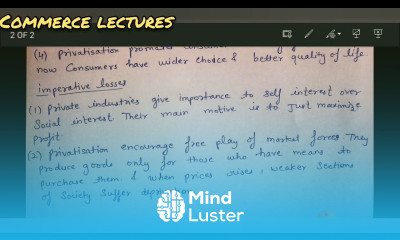 COMMERCE LECTURES
2 OF 2
(4) Privatisation promotes
now Consumers have wider choice & better quality of life.
imperative losses
(1) Private industries give importance to self interest over
Social interest. Their main motive is to Just maximize
Profit
(2) Privatisation encourage free play of market forces They
Produce goods only for those who have means to
Purchase them & when prices raises, weaker sections
of Society Suffer
Mind
Luster